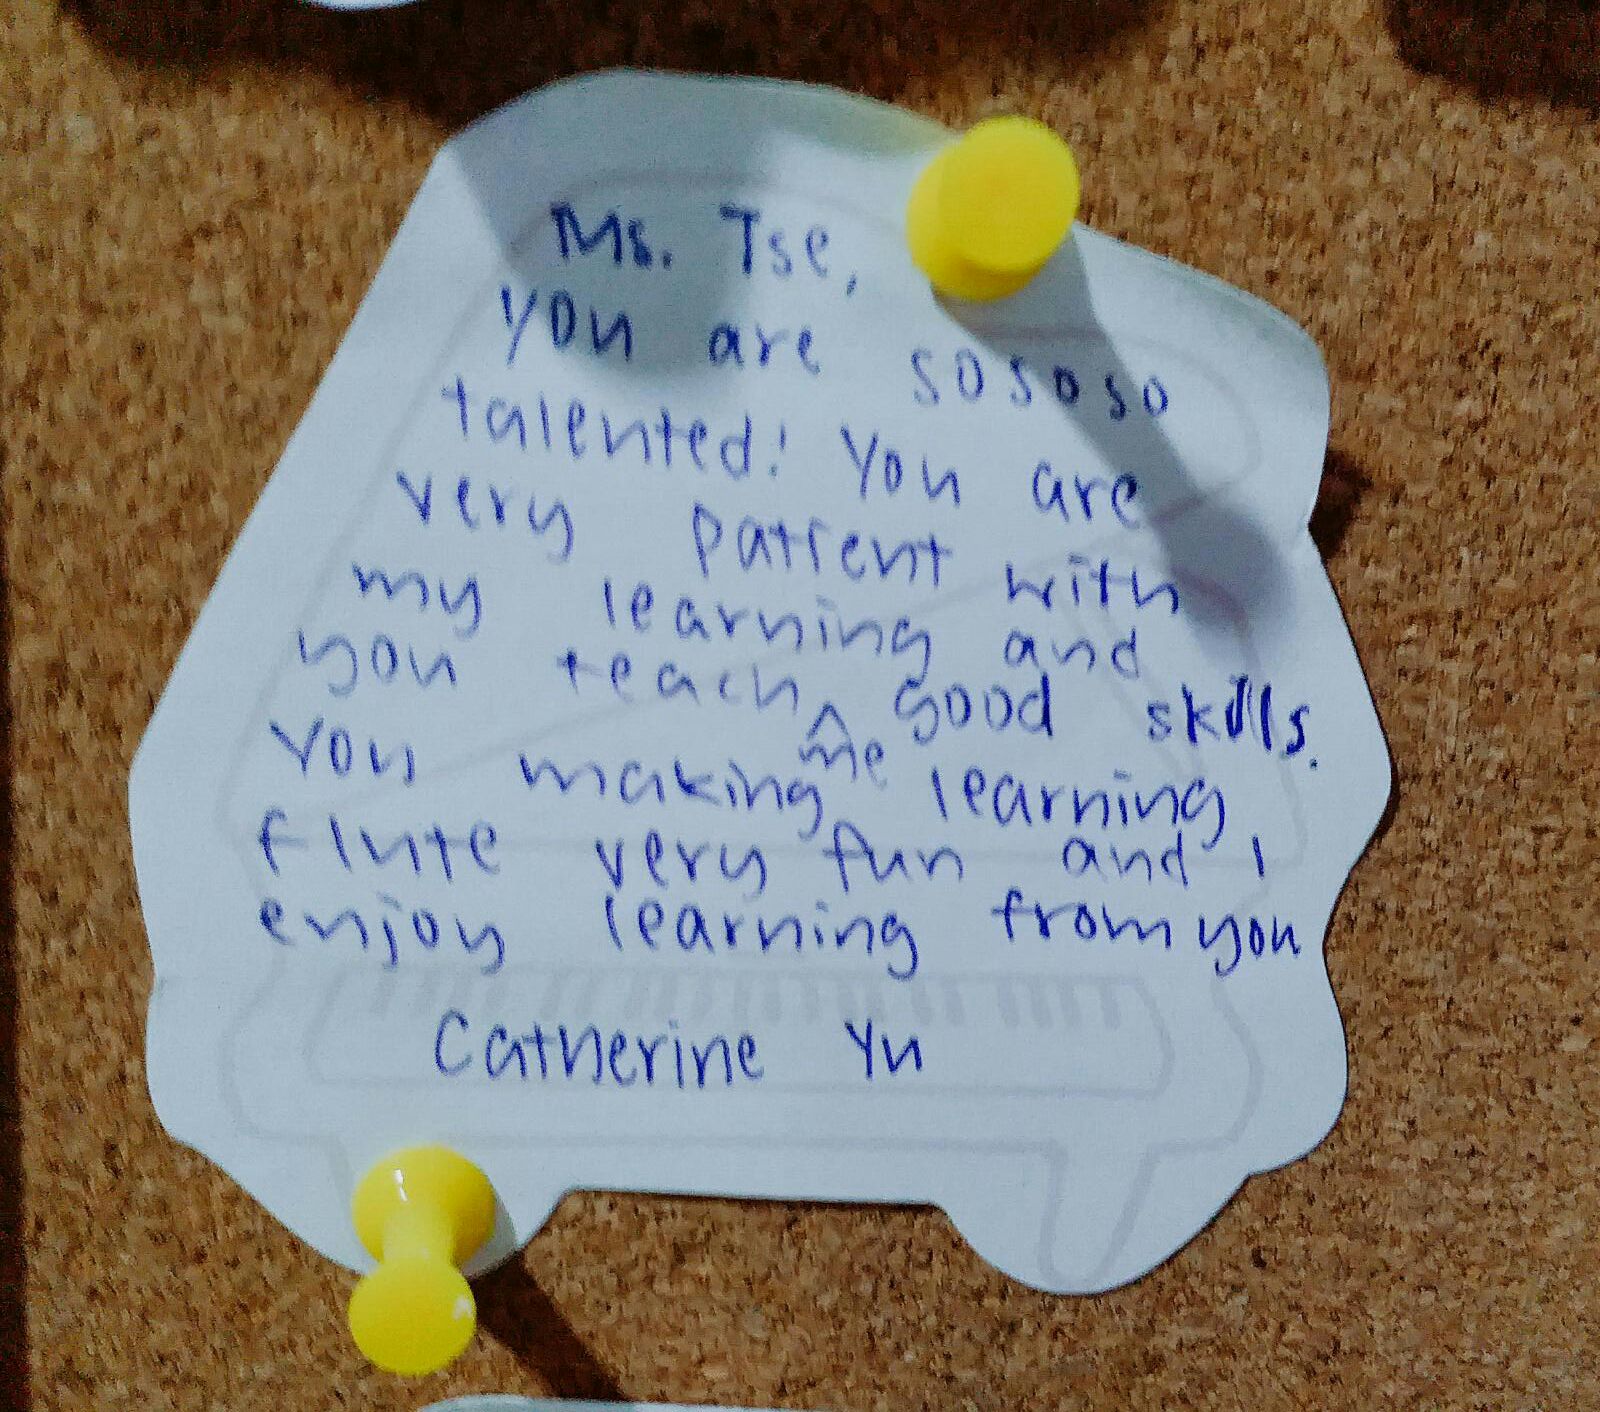 Ms. Tse,
you are sososo
talented! You are
very patient with
my learning and
you teach ^ me good skills.
You making learning
flute very fun and I
enjoy learning from you
Catherine Yu